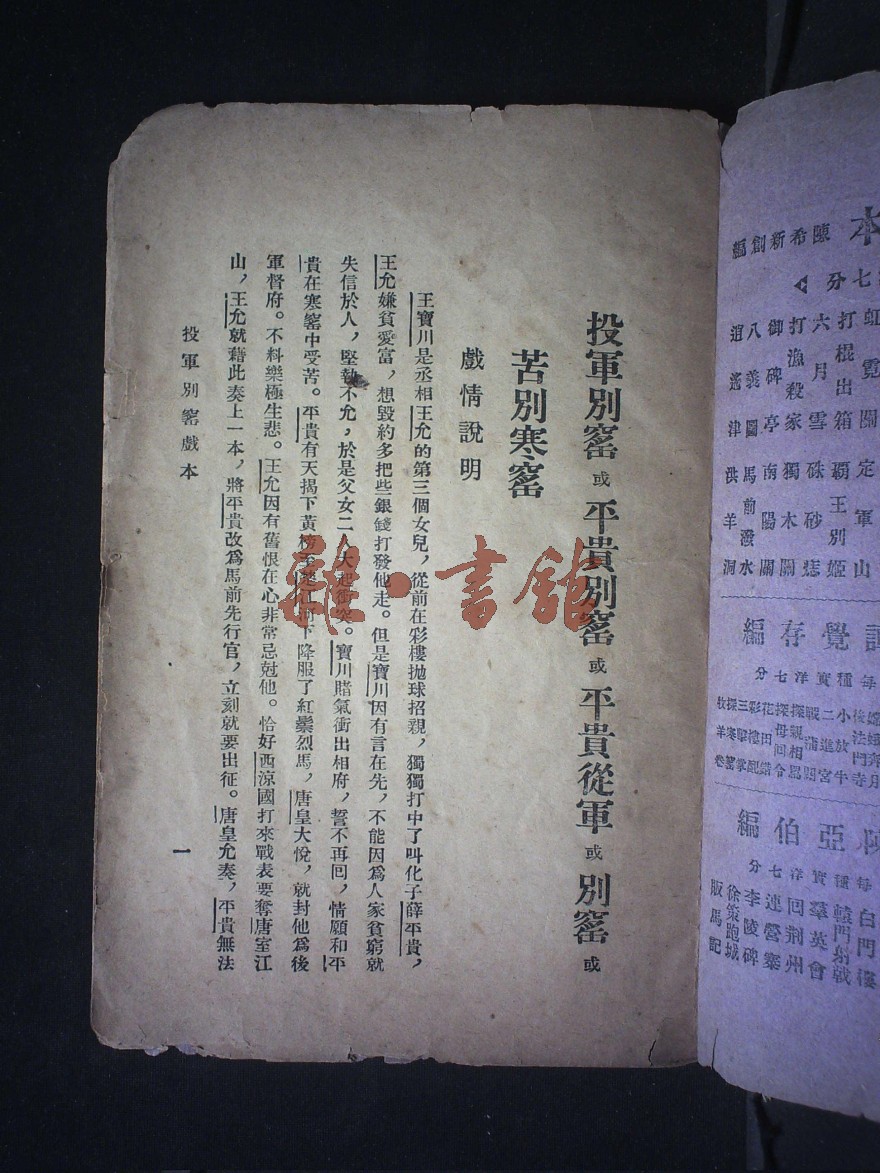 本
陳希新創編
七分
虹霓關 定軍山
打棍出箱 霸王別姬
六月雪 硃砂痣
打漁殺家 獨木關
御碑亭 南陽關
八義圖 馬前潑水
逍遙津 洪羊洞
覺存編
每種實洋七分
嫦娥奔月
後法門寺
小放牛
二進宮
戰蒲關
探親相罵
探母回令
花田錯
彩樓配
三擊掌
探寒窰
牧羊卷
陳亞伯編
每種實洋七分
白門樓
轅門射戟
羣英會
回荊州
連營寨
李陵碑
徐策跑城
販馬記
投軍別窰或平貴別窰或平貴從軍或別窰或
苦別寒窰
戲情說明
王寶川是丞相王允的第三個女兒，從前在彩樓拋球招親，獨獨打中了叫化子薛平貴，
王允嫌貧愛富，想毀約多把些銀錢打發他走。但是寶川因有言在先，不能因爲人家貧窮就
失信於人，堅執不允，於是父女二人大起衝突。寶川賭氣衝出相府，誓不再回，情願和平
貴在寒窰中受苦。平貴有天揭下黃榜至楚江河下降服了紅鬃烈馬，唐皇大悅，就封他爲後
軍督府。不料樂極生悲。王允因有舊恨在心非常忌尅他。恰好西涼國打來戰表要奪唐室江
山，王允就藉此奏上一本，將平貴改爲馬前先行官，立刻就要出征。唐皇允奏，平貴無法
投軍別窰戲本
一
雜·書館